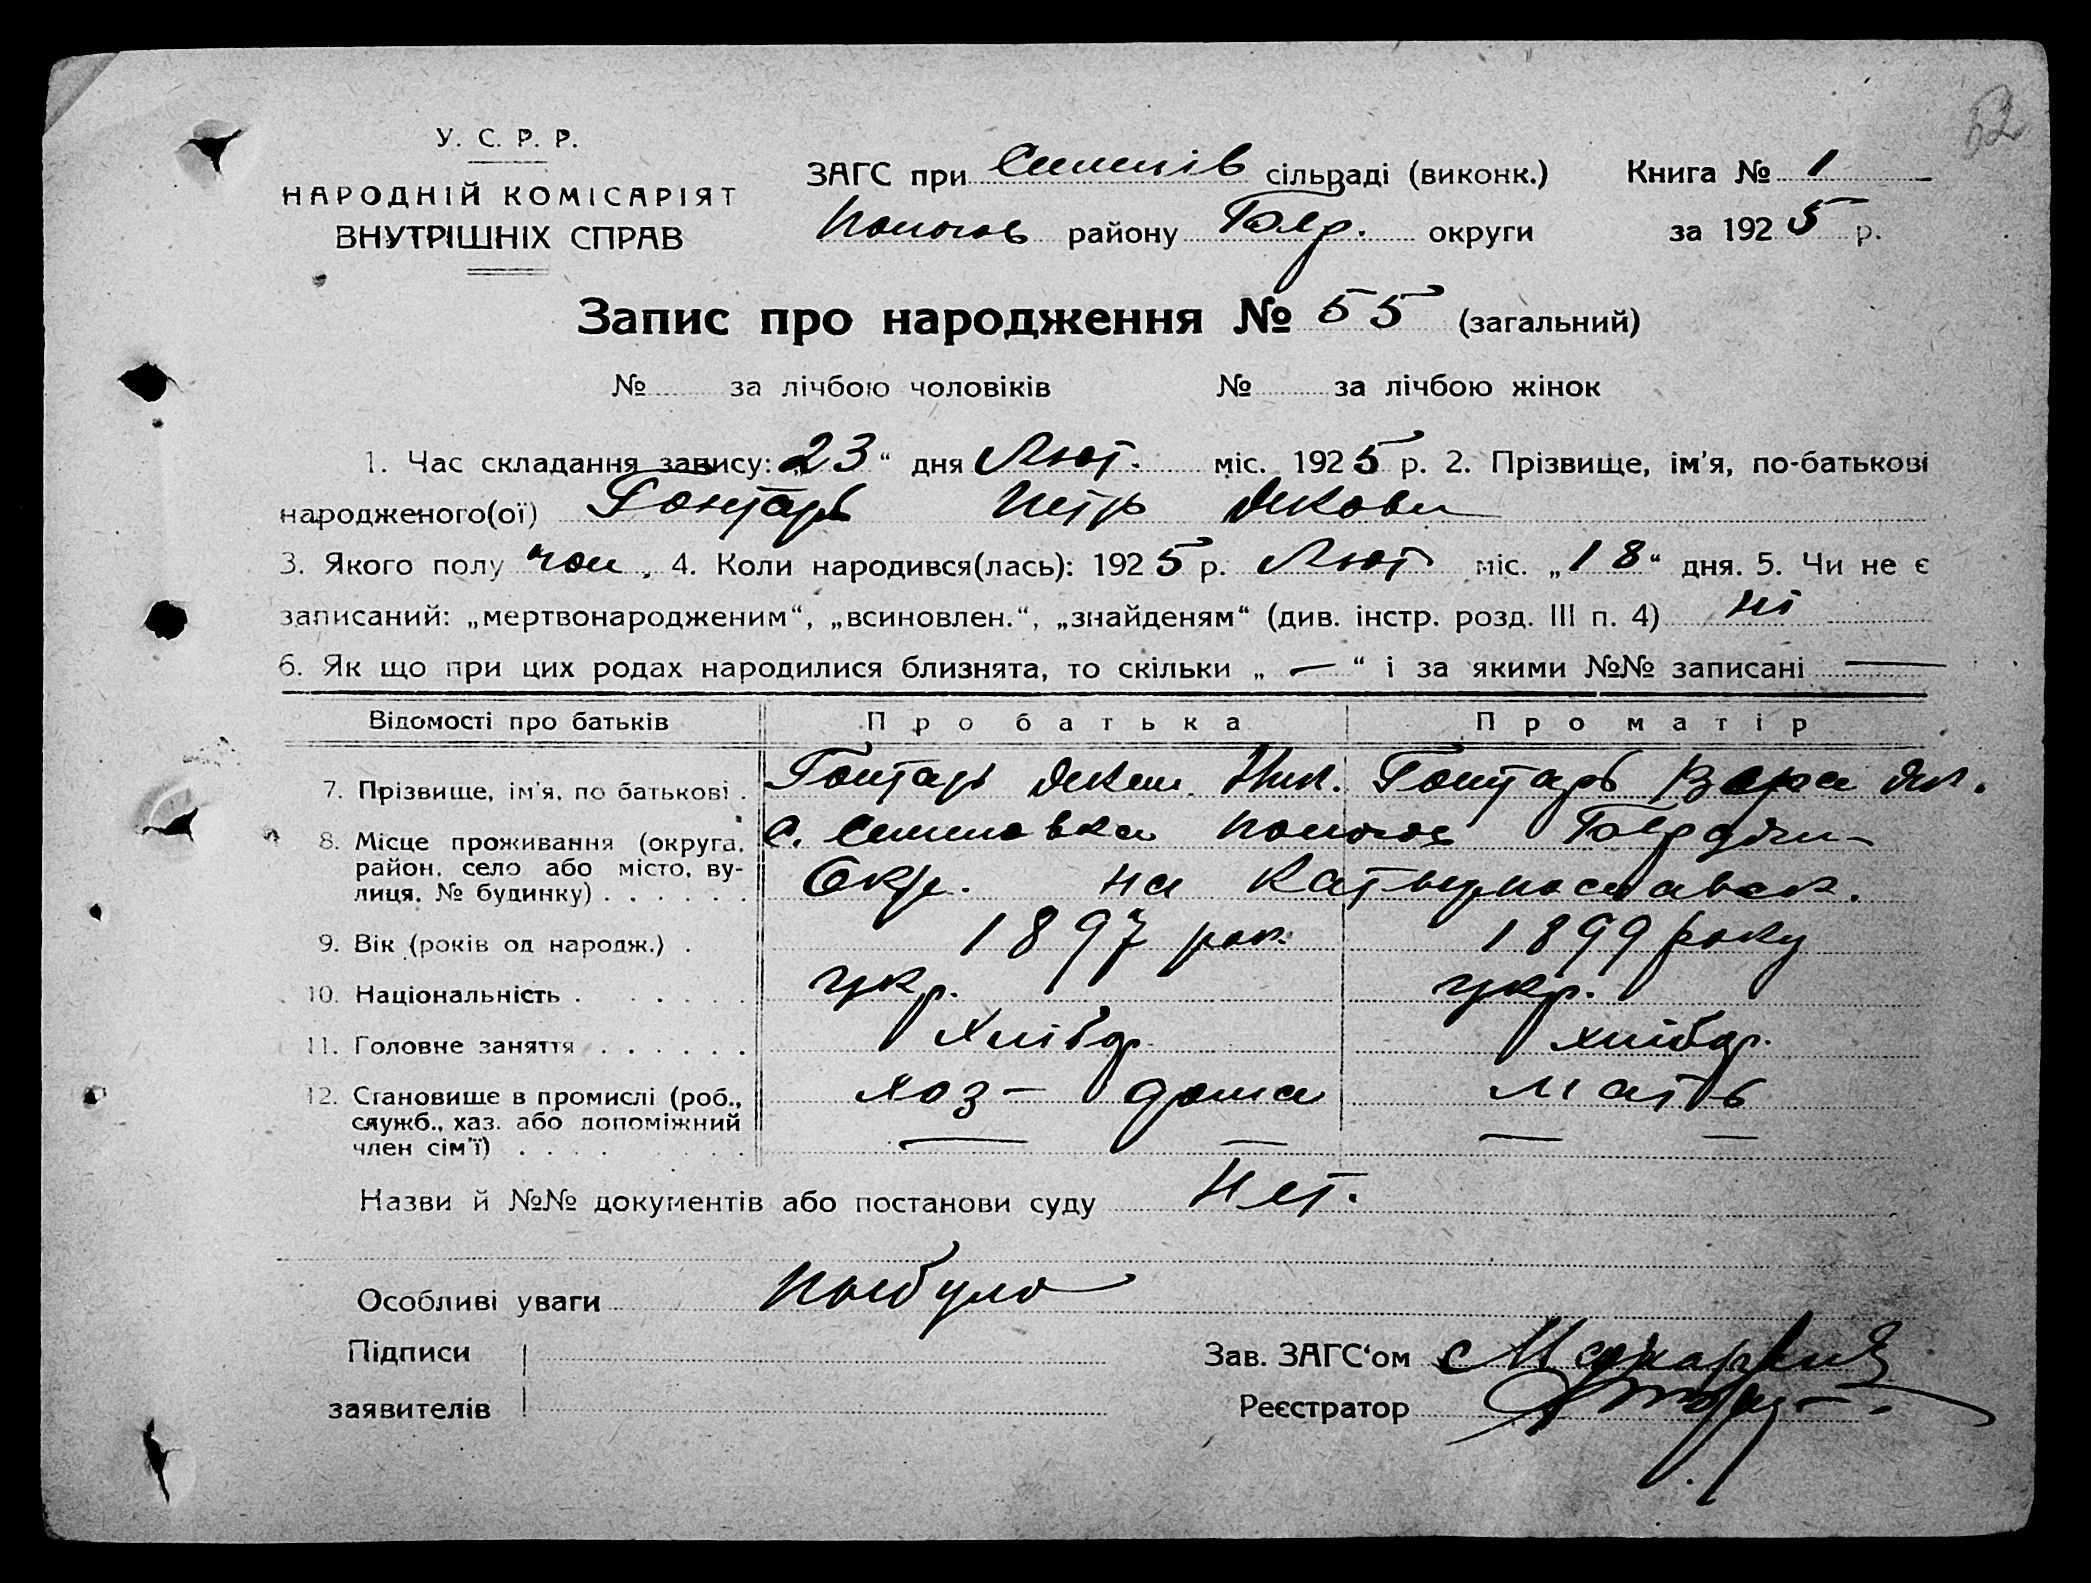 52
У. С. Р. Р.
НАРОДНІЙ КОМІСАРІЯТ
ВНУТРІШНІХ СПРАВ
ЗАГС при сільраді (виконк.) Книга № 1
району округи за 1925 р.
Запис про народження № 55 (загальний)
№ за лічбою чоловіків № за лічбою жінок
1. Час складання запису: „23“ дня Лют. міс. 1925 р. 2. Прізвище, ім'я, по-батькові
народженого(ої) Гонтарь Петр
3. Якого полу чол. 4. Коли народився(лась): 1925 р. Лют міс. „18“ дня. 5. Чи не є
записаний: „мертвонародженим“, „всиновлен.“, „знайденям“ (див. інстр. розд. III п. 4) ні
6. Як що при цих родах народилися близнята, то скільки „ — “ і за якими №№ записані —
Відомості про батьків Про батька Про матір
7. Прізвище, ім'я, по батькові . Гонтарь Гонтарь Вера
8. Місце проживання (округа, район, село або місто, вулиця, № будинку) . . . . . . с.
Окр. на
9. Вік (років од народж.) . 1897 рок 1899 року
10. Національність . . . . . . укр. укр.
11. Головне заняття . . . . . . хлібор. хлібор.
12. Становище в промислі (роб., служб., хаз. або допоміжний член сім'ї) . . . . хоз — дома мать
— — — —
Назви й №№ документів або постанови суду Нет.
Особливі уваги
Підписи
заявителів
Зав. ЗАГС'ом
Реєстратор